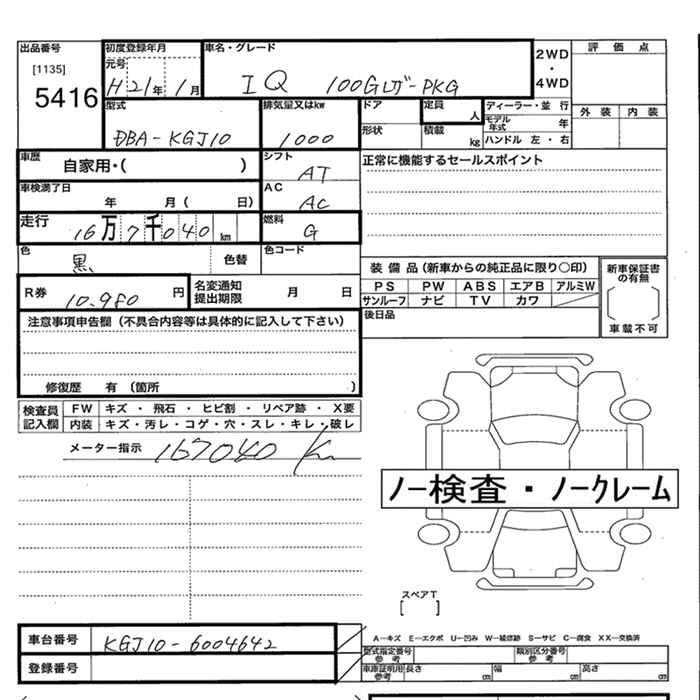 出品番号 初度登録年月 車名・グレード 2WD・4WD 評価点
[1135] 元号
5416 H21年 1月 IQ 100Gレザ-PKG
型式 排気量又はkw ドア 定員 人 ディーラー・並 行 外装 内装
モデル年式 年
DBA-KGJ10 1000 形状 積載 kg ハンドル 左・右
車歴 自家用・( ) シフト AT 正常に機能するセールスポイント
車検満了日 年 月( 日) AC AC
走行 16万7千040km 燃料 G
色 黒 色替 色コード
装備品(新車からの純正品に限り○印) 新車保証書の有無
R券 10.980円 名変通知提出期限 月 日 PS PW ABS エアB アルミW
サンルーフ ナビ TV カワ [ ]
後日品 車載不可
注意事項申告欄(不具合内容等は具体的に記入して下さい)
修復歴 有 (箇所 )
検査員記入欄 FW キズ ・ 飛石 ・ ヒビ割 ・ リペア跡 ・ X要
内装 キズ・汚レ・コゲ・穴・スレ・キレ・破レ
メーター指示 167040 Km
ノー検査・ノークレーム
スペアT
[ ]
車台番号 KGJ10-6004642
A-キズ E-エクボ U-凹み W-補修跡 S-サビ C-腐食 XX-交換済
型式指定番号参考 類別区分番号参考
登録番号 車庫証明用参考 長さ cm 幅 cm 高さ cm